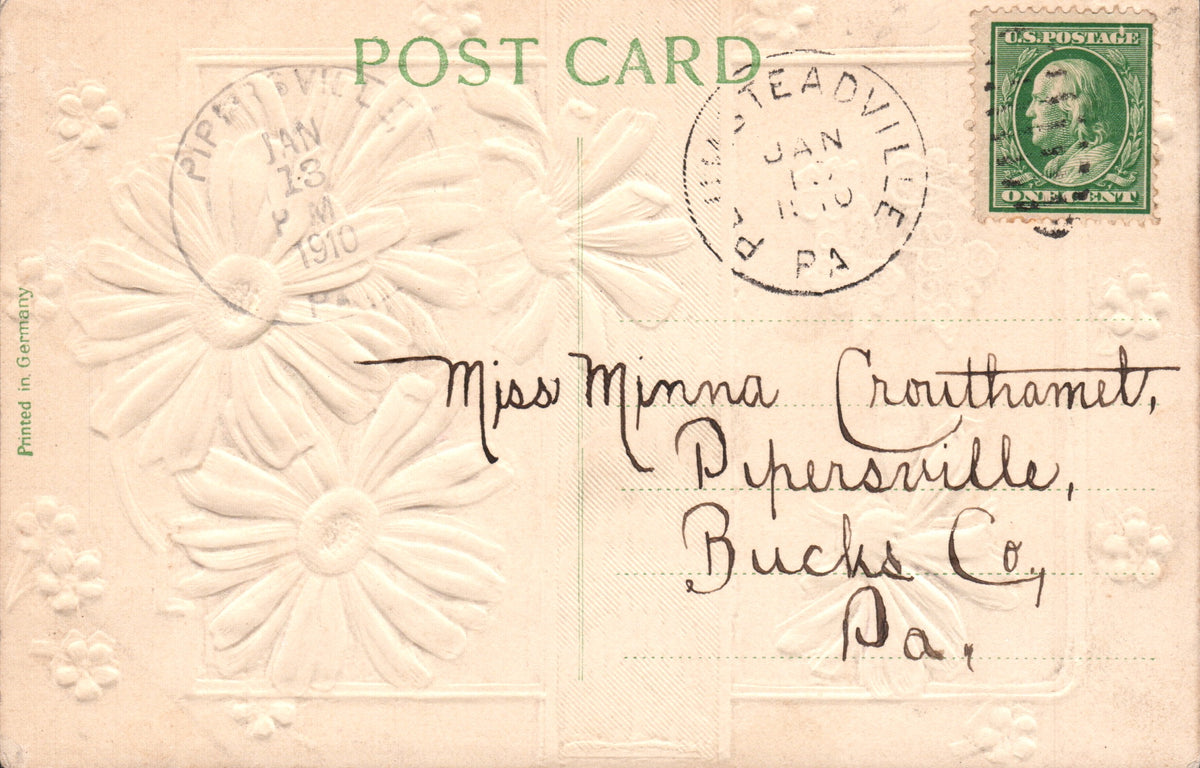 POST CARD
U.S. POSTAGE
ONE CENT
PIPERSVILLE
JAN
13
1910
PA
STEADVILLE
JAN
PA
Printed in Germany
Miss Minna Crouthamel,
Pipersville,
Bucks Co,
Pa.